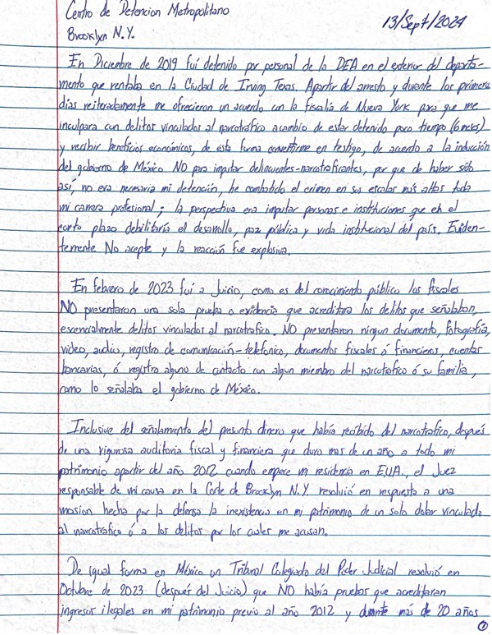 Centro de Detencion Metropolitano
13/Sept/2024
Brooklyn N.Y.
En Diciembre de 2019 fuí detenido por personal de la DEA en el exterior del departa-
mento que rentaba en la Ciudad de Irving Texas. Apartir del arresto y durante los primeros
días reiteradamente me ofrecieron un acuerdo con la fiscalía de Nueva York para que me
inculpara con delitos vinculados al narcotrafico acambio de estar detenido poco tiempo (6 meses)
y recibir beneficios económicos, de esta forma convertirme en testigo, de acuerdo a la inducción
del gobierno de México NO para imputar delincuentes-narcotraficantes, por que de haber sido
así, no era necesaria mi detención, he combatido el crimen en sus escalas más altas toda
mi carrera profesional; la perspectiva era imputar personas e instituciones que en el
corto plazo debilitaría el desarrollo, paz pública y vida institucional del país. Eviden-
temente No acepte y la reacción fue explosiva.
En febrero de 2023 fuí a Juicio, como es del conocimiento público los fiscales
NO presentaron una sola prueba o evidencia que acreditara los delitos que señalaban,
esencialmente delitos vinculados al narcotrafico. NO presentaron ningun documento, fotografía,
video, audio, registro de comunicación-telefónico, documentos fiscales ó financieros, cuentas
bancarias, ó registro alguno de contacto con algun miembro del narcotrafico ó su familia,
como lo señalaba el gobierno de México.
Inclusive del señalamiento del presunto dinero que había recibido del narcotrafico, después
de una rigurosa auditoria fiscal y financiera que duro mas de un año a todo mi
patrimonio apartir del año 2012 cuando empece mi residencia en EUA., el Juez
responsable de mi causa en la Corte de Brooklyn N.Y resolvió en respuesta a una
mosion hecha por la defensa la inexistencia en mi patrimonio de un solo dolar vinculado
al narcotrafico ó a los delitos por los cuales me acusan.
De igual forma en México un Tribunal Colegiado del Poder Judicial resolvió en
Octubre de 2023 (después del Juicio) que NO había pruebas que acreditaran
ingresos ilegales en mi patrimonio previo al año 2012 y durante más de 20 años
1